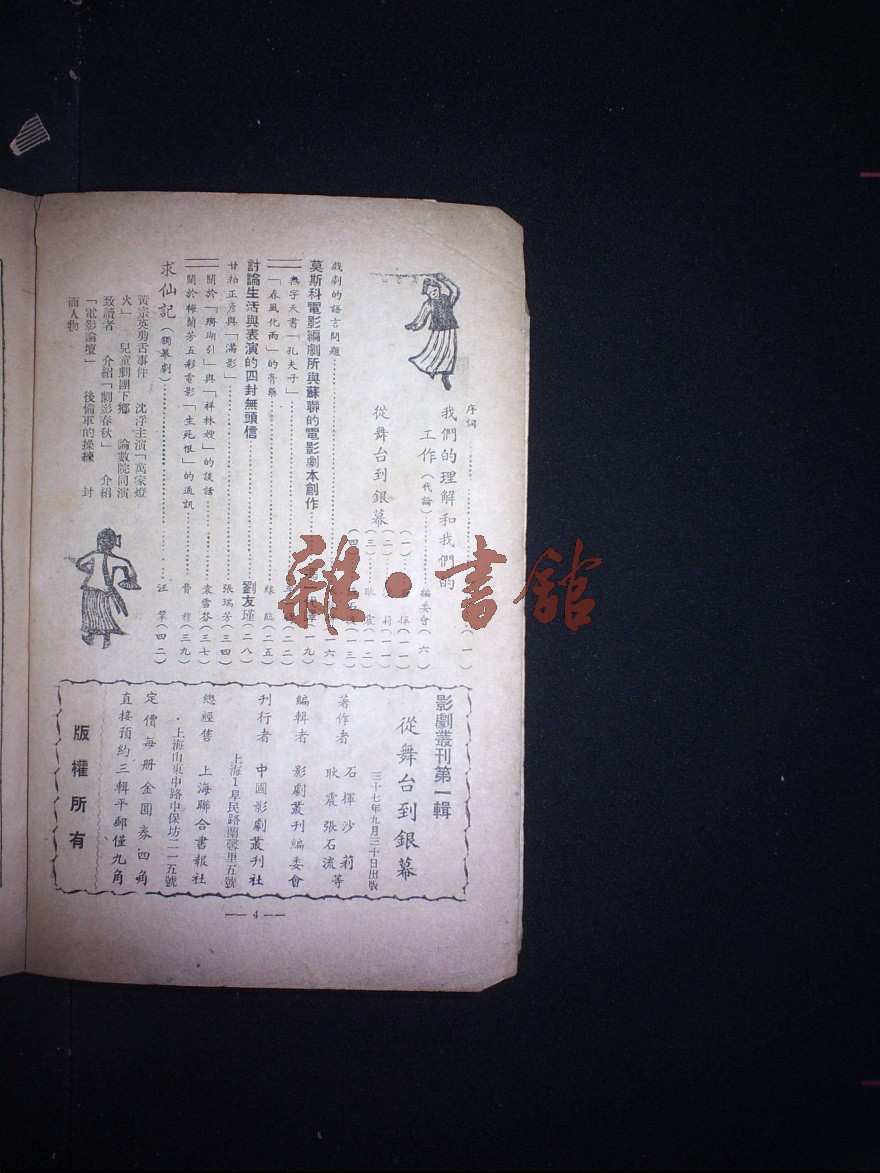 序詞………………………(一)
我們的理解和我們的
工作(代論)…………編委會(六)
從舞台到銀幕
(一)
(二)
(三)
(四)
耿震(一二)
戲劇的語言問題
莫斯科電影編劇所與蘇聯的電影劇本創作
無字天書「孔夫子」
「春風化雨」的膏藥
討論生活與表演的四封無頭信……劉友瑾(二八)
甘粕正彥與「滿影」……張瑞芳(三四)
關於「珊瑚引」與「祥林嫂」的談話……袁雪芬(三七)
關於梅蘭芳五彩電影「生死恨」的通訊……費穆(三九)
求仙記(獨幕劇)……汪鞏(四二)
黃宗英剪舌事件 沈浮主演「萬家燈
火」 兒童劇團下鄉 論數院同演
致讀者 介紹「劇影春秋」 介紹
「電影論壇」 後備軍的操練 封
面人物
影劇叢刊第一輯
從舞台到銀幕
三十七年九月三十日出版
著作者 石揮 沙莉
耿震 張石流等
編輯者 影劇叢刊編委會
刊行者 中國影劇叢刊社
上海1阜民路蘭馨里五號
總經售 上海聯合書報社
上海山東中路中保坊二一五號
定價每册金圓券四角
直接預約三輯平郵僅九角
版權所有
— 4 —
雜·書館